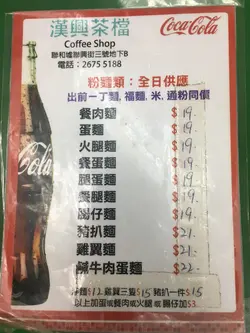 漢興茶檔
Coca-Cola
Coffee Shop
聯和墟聯興街三號地下B
電話：2675 5188
粉麵類：全日供應
出前一丁麵, 福麵. 米. 通粉同價
餐肉麵 $19.
蛋麵 $19.
火腿麵 $19.
餐蛋麵 $19.
腿蛋麵 $19.
餐腿麵 $19.
腸仔麵 $19.
豬扒麵 $21.
雞翼麵 $21.
鹹牛肉蛋麵 $22.
淨麵$12 雞翼三隻$15 豬扒一件$15
以上加蛋或餐肉或火腿或腸仔加$3.
Coca